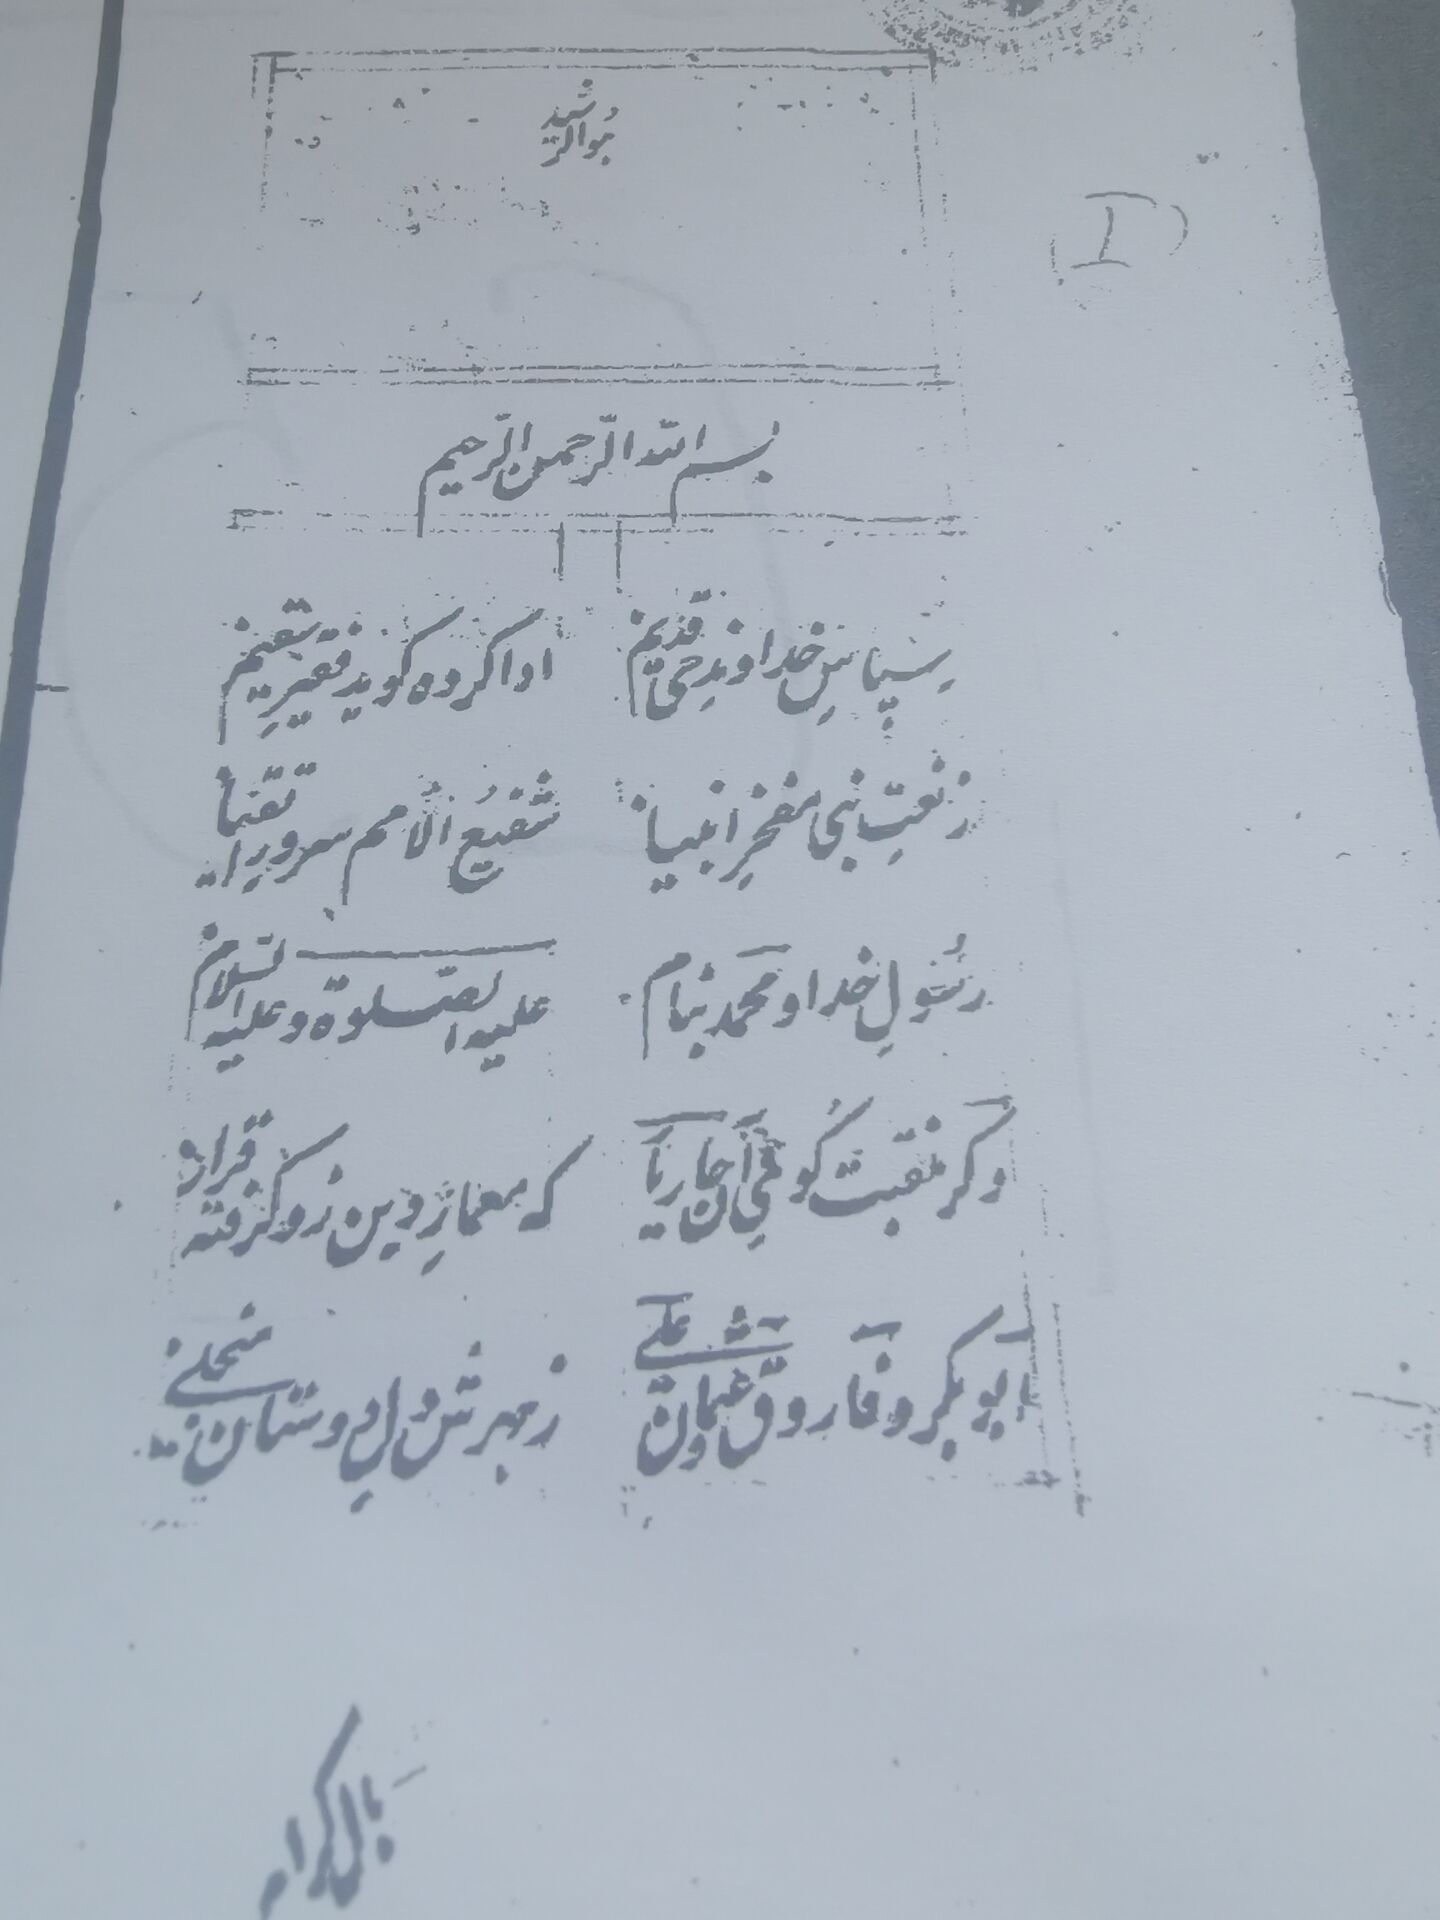 هو الرشید
I
بسم الله الرحمن الرحیم
سپاسِ خداوندِ حیِ قدیم اداکرده کوید فقیرِ یتیم
ز نعتِ نبی مفخرِ انبیا شفیعُ الامم سرورِ اتقیا
رسُولِ خدا و محمد بنام علیه الصّلوة و علیه السّلام
وکر منقبت کوئی آن چار یار که معمارِ دین زو کرفته قرار
ابو بکر و فاروق عثمان و علی ز مهرش دلِ دوستان منجلی
بال کرام